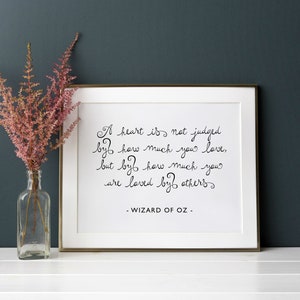 A heart is not judged
by how much you love,
but by how much you
are loved by others
- WIZARD OF OZ -